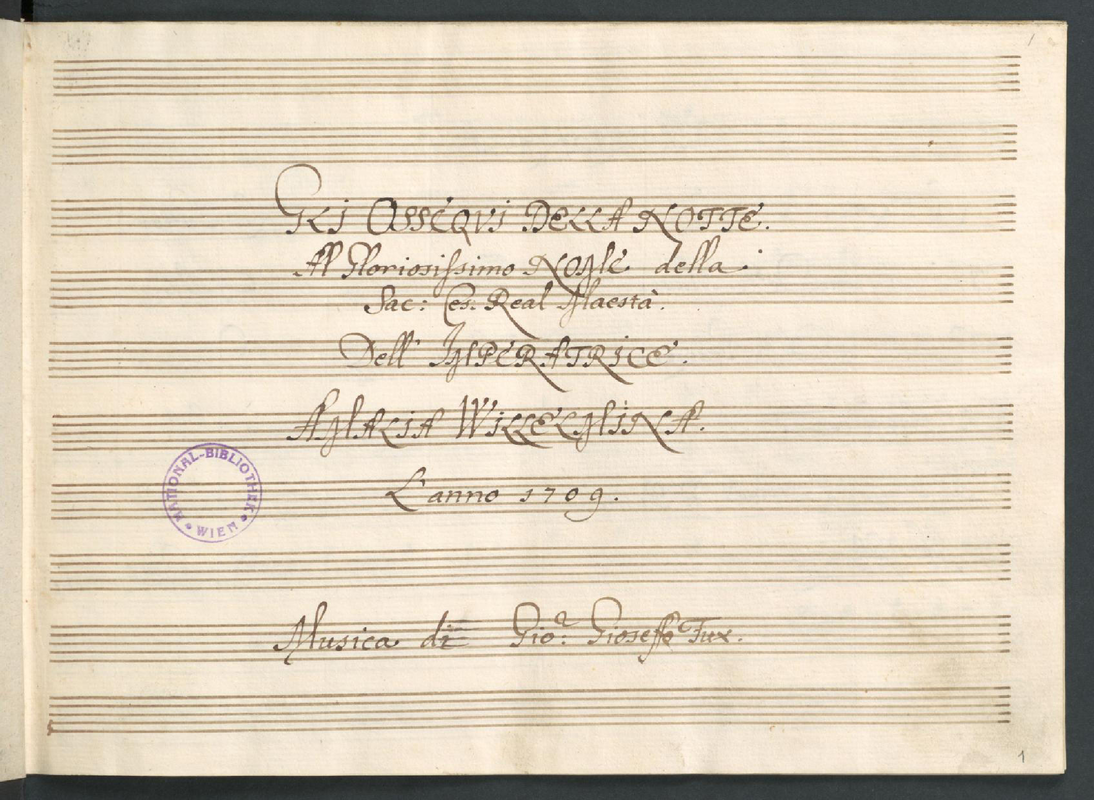 1
GLI OSSEQVI DELLA NOTTE.
Al Gloriosissimo NOME della
Sac: Ces: Real Maestà.
Dell' IMPERATRICE.
AMALIA WILLELMINA.
L'anno 1709.
NATIONAL-BIBLIOTHEK
WIEN
Musica di Gio: Gioseffo Fux.
1